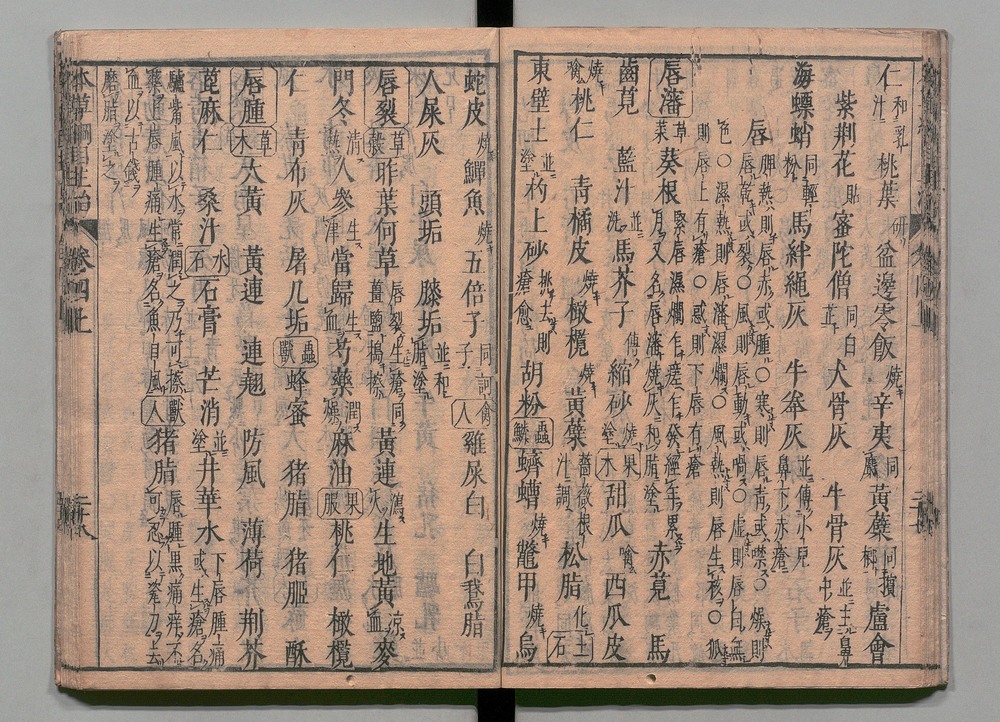 仁 和乳汁 桃葉 研 盆邊零飯 燒 辛夷 同麝 黃蘗 同檳榔 盧會
紫荆花 貼 密陀僧 同白 犬骨灰 牛骨灰 並主鼻中瘡
海螵蛸 同輕粉 馬絆繩灰 牛桊灰 並傳小兒鼻下赤瘡
唇 脾熱則唇赤或腫○寒則唇青或噤○燥則
唇乾或裂○風則唇動或喎○虛則唇白無
色○濕熱則唇瀋濕爛○風熱則唇生核○狐
則唇上有瘡○惑則下唇有瘡
唇瀋 草菜 葵根 緊唇濕爛乍瘥乍發經年累月又名唇瀋燒灰和脂塗 赤莧 馬
齒莧 藍汁 並洗 馬芥子 傳 縮砂 燒塗 果木 甜瓜 噙 西瓜皮
燒噙 桃仁 青橘皮 燒 橄欖 燒 黃蘗 薔薇根汁調 松脂 化 土石
東壁土 並塗 杓上砂 挑去則瘡愈 胡粉 蟲鱗 蠐螬 燒 鼈甲 燒 烏
蛇皮 燒 鱓魚 燒 五倍子 同訶子 禽人 雞屎白 白鵞脂
人屎灰 頭垢 膝垢 並和脂塗
唇裂 草穀 昨葉何草 唇裂生瘡同薑鹽搗擦 黃連 瀉火 生地黃 涼血 麥
門冬 清熱 人參 生津 當歸 生血 芍藥 潤燥 麻油 果服 桃仁 橄欖
仁 青布灰 屠几垢 蟲獸 蜂蜜 猪脂 猪脤 酥
唇腫 草木 大黃 黃連 連翹 防風 薄荷 荆芥
蓖麻仁 桑汁 水石 石膏 芒消 並塗 井華水 下唇腫痛或生瘡名
驢觜風以水常潤之乃可擦 獸人 猪脂 唇腫黑痛痒不可忍以瓷刀去
血以古錢磨脂塗之
本草綱目主治 卷四上 二十八